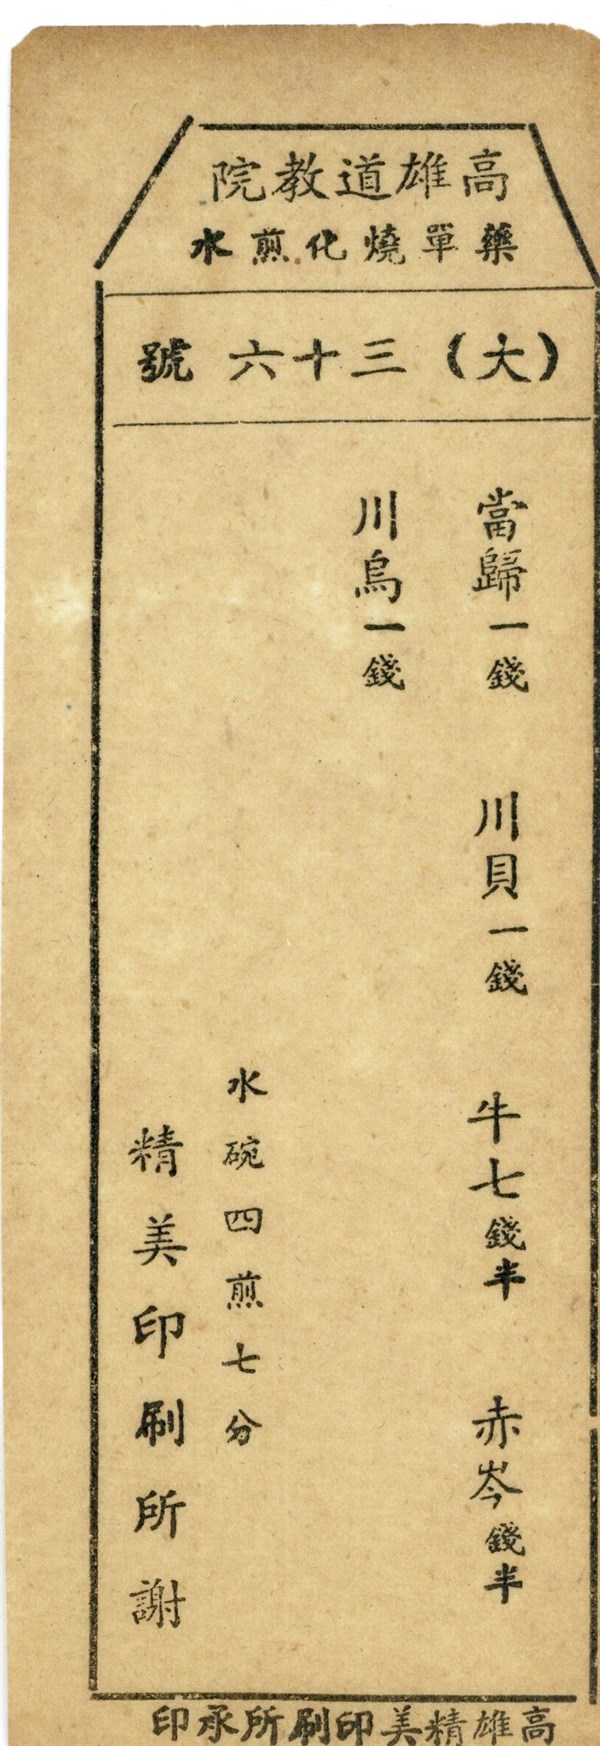 高雄道教院
藥單燒化煎水
(大)三十六號
當歸一錢 川貝一錢 牛七錢半 赤岑錢半
川烏一錢
水碗四煎七分
精美印刷所謝
高雄精美印刷所承印